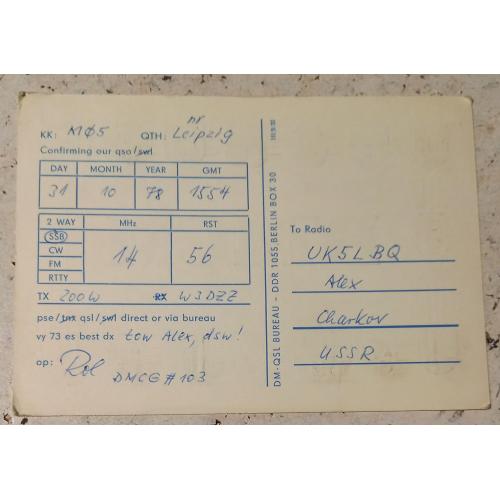 nr
KK: M05 QTH: Leipzig
Confirming our qso/swl
DAY MONTH YEAR GMT
31 10 78 1554
2 WAY MHz RST
SSB
CW
FM
RTTY
14 56
TX 200W RX W3DZZ
pse/tnx qsl/swl direct or via bureau
vy 73 es best dx tow Alex, dsw!
op: Rol DMCG#103
DM-QSL BUREAU - DDR 1055 BERLIN BOX 30
To Radio
UK5LBQ
Alex
Charkov
USSR